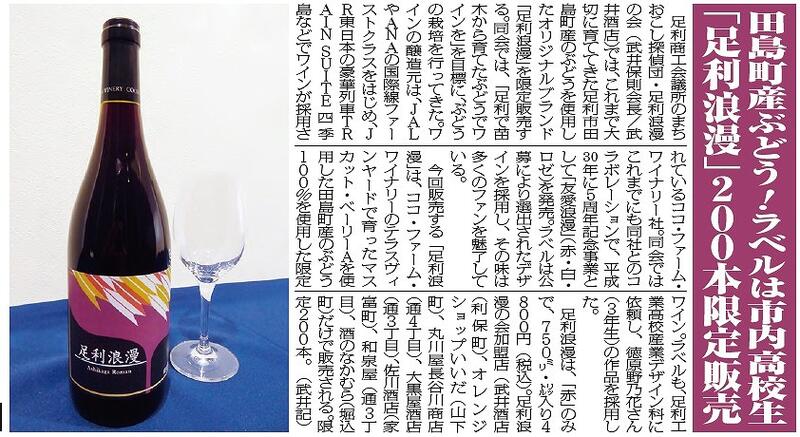 田島町産ぶどう！ラベルは市内高校生
「足利浪漫」200本限定販売
足利商工会議所のまち
おこし探偵団・足利浪漫
の会（武井保則会長／武
井酒店）では、これまで大
切に育ててきた足利市田
島町産のぶどうを使用し
たオリジナルブランド
「足利浪漫」を限定販売す
る。同会では、「足利で苗
木から育てたぶどうでワ
インを」を目標に、ぶどう
の栽培を行ってきた。ワ
インの醸造元は、JAL
やANAの国際線ファー
ストクラスをはじめ、J
R東日本の豪華列車TR
AIN SUITE 四季
島などでワインが採用さ
れているココ・ファーム・
ワイナリー社。同会では
これまでにも同社とのコ
ラボレーションで、平成
30年に5周年記念事業と
して「友愛浪漫」（赤・白・
ロゼ）を発売。ラベルは公
募により選出されたデザ
インを採用し、その味は
多くのファンを魅了して
いる。
今回販売する「足利浪
漫」は、ココ・ファーム・
ワイナリーのテラスヴィ
ンヤードで育ったマス
カット・ベーリーAを使
用した田島町産のぶどう
100％を使用した限定
ワイン。ラベルも、足利工
業高校産業デザイン科に
依頼し、徳原野乃花さん
（3年生）の作品を採用し
た。
足利浪漫は、「赤」のみ
で、750ミリリットル入り4
800円（税込）。足利浪
漫の会加盟店（武井酒店
（利保町）、オレンジ
ショップいいだ（山下
町）、丸川屋長谷川商店
（通4丁目）、大黒屋酒店
（通3丁目）、佐川酒店（家
富町）、和泉屋（通3丁
目）、酒のなかむら（堀込
町）だけで販売される。限
定200本。（武井記）
WINERY COCO
足利浪漫
Ashikaga Roman